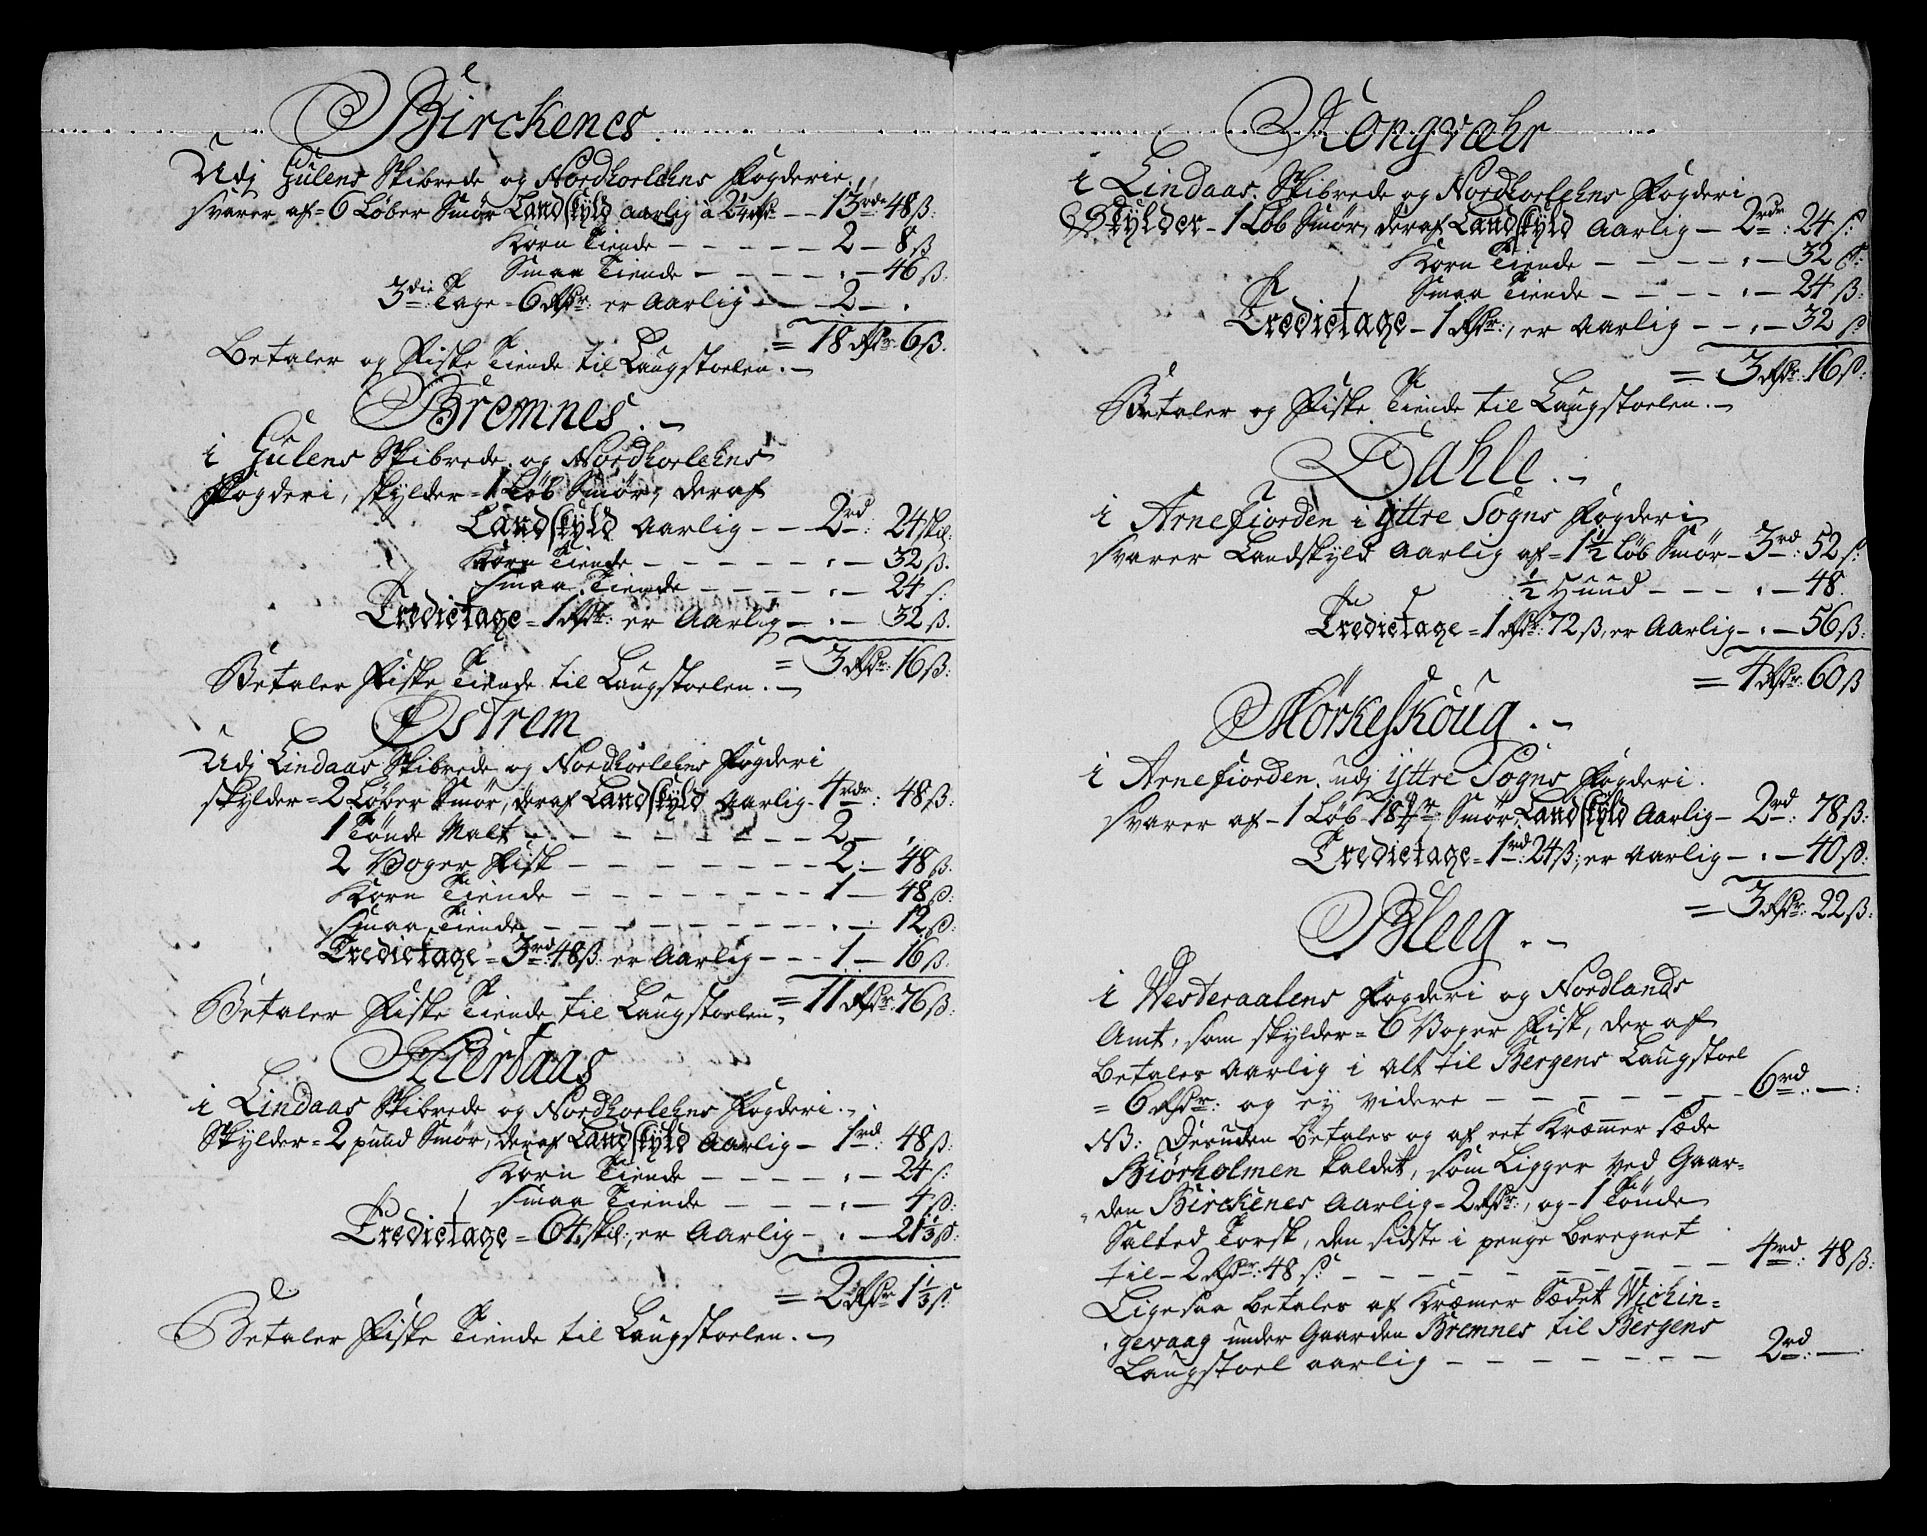 Birckenes.
Udj Gulens Skibrede og Nordhorlehns Fogderie,
svarer af = 6 Løber Smør Landskyld Aarlig à 2¼ Rdr - - 13 rdr 48 ß:
Korn Tiende - - - - - 2 - 8 ß
Smaa Tiende - - - - : - 46 ß.
3die Tage = 6 Rdr: er Aarlig - - 2 - .
= 18 Rdr: 6 ß.
Betaler og Fiske Tiende til Laugstoelen. -
Bremnes. -
i Gulens Skibrede og Nordhorlehns
Fogderi, skylder = 1 Løb Smør, deraf
Landskyld Aarlig - - 2 rd: 24 skil:
Korn Tiende - - - - - : - 32 ß.
Smaa Tiende - - - - : - 24 ß:
Tredietage = 1 Rdr: er Aarlig - : - 32 ß.
= 3 Rdr: 16 ß:
Betaler Fiske Tiende til Laugstoelen. -
Østrem
Udj Lindaas Skibrede og Nordhorlehns Fogderi
skylder = 2 Løber Smør, deraf Landskyld Aarlig - 4 rdr: 48 ß:
1 Tønde Malt - - - - - - - - 2 - ,
2 Voger Fisk - - - - - - - 2: - 48 ß.
Korn Tiende - - - - - - - - 1 - 48 ß:
Smaa Tiende - - - - - - - - . - 12 ß:
Tredietage = 3 rd: 48 ß: er Aarlig - - - 1 - 16 ß:
= 11 Rdr: 76 ß:
Betaler Fiske Tiende til Laugstoelen,
Hiertaas
i Lindaas Skibrede og Nordhorlehns Fogderi. -
Skylder = 2 pund Smør, deraf Landskyld Aarlig - 1 rd: 48 ß:
Korn Tiende - - - - : - 24 ß:
Smaa Tiende - - - - : - 4 ß:
Tredietage = 64 skil:, er Aarlig - : - 21⅓ ß:
= 2 Rdr 1⅓ ß
Betaler Fiske Tiende til Laugstoelen. -
Kongvæhr
i Lindaas Skibrede og Nordhorlehns Fogderi
Skylder - 1 Løb Smør, deraf Landskyld Aarlig - 2 rdr: 24 ß:
Korn Tiende - - - - : - 32 ß:
Smaa Tiende - - - - : - 24 ß:
Tredietage - 1 Rdr:, er Aarlig - - : - 32 ß
= 3 Rdr: 16 ß:
Betaler og Fiske Tiende til Laugstoelen. -
Dahle. -
i Arnefiorden i Yttre Sogns Fogderi
svarer Landskyld Aarlig af = 1½ Løb Smør - 3 rd: 52 ß:
½ Huud - - - : - 48.
Tredietage = 1 Rdr: 72 ß, er Aarlig - : - 56 ß:
= 4 Rdr: 60 ß
Mørkeskoug. -
i Arnefiorden udj Yttre Sogns Fogderi.
svarer af - 1 Løb 18 Smør, Landskyld Aarlig - 2 rd: 78 ß:
Tredietage = 1 rd: 24 ß:, er Aarlig - . - 40 ß:
= 3 Rdr: 22 ß:
Bleeg. -
i Westeraalens Fogderi og Nordlands
Amt, som skylder = 6 Voger Fisk, der af
betales Aarlig i alt til Bergens Laugstoel
= 6 Rdr: og ey videre - - - - - - - 6 rd: - :
NB: Desuden betales og af eet Kræmmer Sæde
Biørholmen kaldet, som Ligger ved Gaar-
den Birckenes Aarlig = 2 Rdr:, og - 1 Tønde
Salted Torsk, den sidste i penge beregnet
til - 2 Rdr: 48 ß: - - - - - - - - - 4 rd: 48 ß:
Ligesaa betales af Kræmer Sædet Wichin=
gevaag under Gaarden Bremnes til Bergens
Laugstoel aarlig - - - - - - - - 2 rd: - :